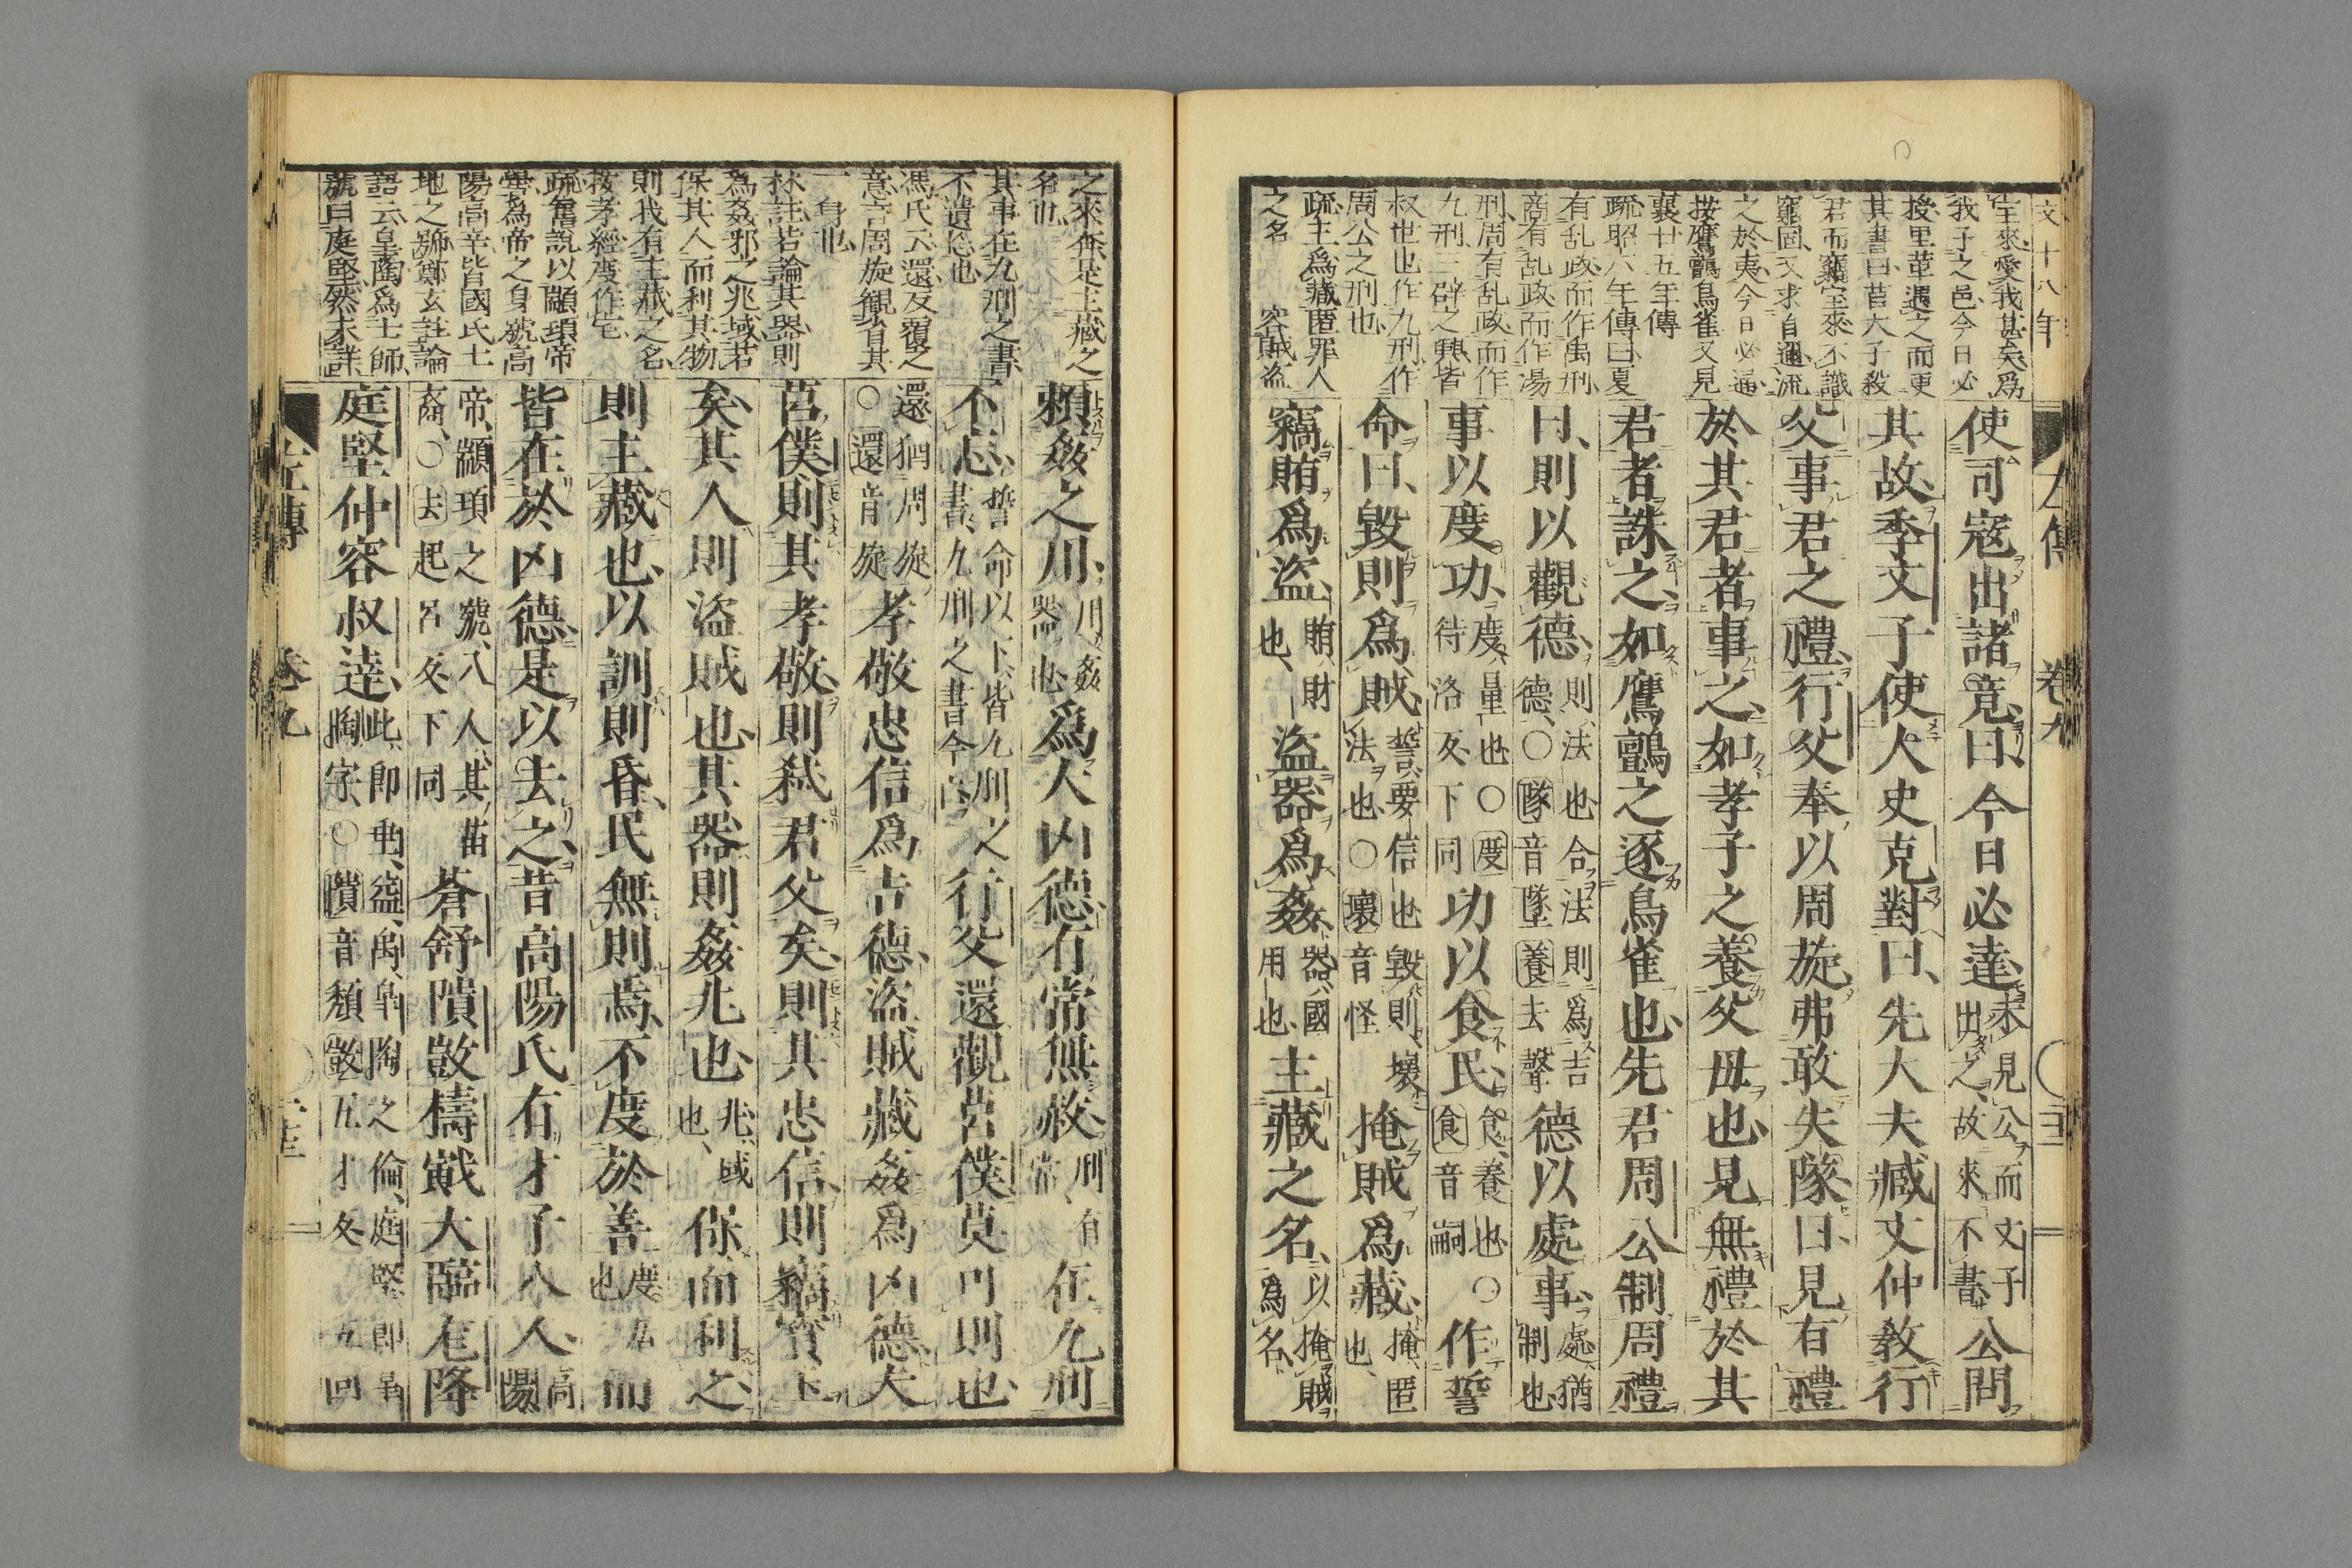 文十八年
宝來、愛我甚矣、爲
我予之邑、今日必
授、里革遇之而更
其書曰、莒大子殺
君而竊宝來、不識
窮固、又求自邇、流
之於夷、今日必通
按鷹鸇鳥雀又見
襄廿五年傳
疏昭六年傳曰、夏
有乱政而作禹刑
商有乱政、而作湯
刑、周有乱政、而作
九刑、三辟之興、皆
叔世也、作九刑、作
周公之刑也
疏、主爲藏匿罪人
之名 容賊盗
左傳 卷九
使司寇出諸竟、曰、今日必達、未見公而文子出之、故來不書、公問
其故、季文子使大史克對曰、先大夫臧文仲敎行
父事君之禮、行父奉以周旋、弗敢失隊、曰、見有禮
於其君者、事之、如孝子之養父母也、見無禮於其
君者、誅之、如鷹鸇之逐鳥雀也、先君周公制周禮
曰、則以觀德、則、法也、合法則爲吉德、〇隊音墜養去聲德以處事、處、猶制也、
事以度功、度、量也〇度待洛反下同功以食民、食、養也、〇食音嗣作誓
命曰、毀則爲賊、誓、要信也、毀則、壞法也〇壞音怪掩賊爲藏、掩、匿也、
竊賄爲盗、賄、財也、盗器爲姦、器、國用也主藏之名、以掩賊爲名、
之來奔是主藏之
名也、
其事在九刑之書
不遺忘也
馮氏云、還、反覆之
意、言周旋觀省其
一身也、
林註、若論其器、則
爲姦邪之兆域、若
保其人而利其物
則我有主藏之名、
按、孝經度作宅
疏、舊說以顓頊帝
嚳、爲帝之身號、高
陽高辛皆國氏土
地之號、鄭玄註論
語云、皋陶爲士師、
號曰庭堅、然未詳
賴姦之用、用姦器也、爲大凶德、有常無赦、刑有常、在九刑
不忘、誓命以下、皆九刑之書、九刑之書今亡、行父還觀莒僕、莫可則也、
還猶周旋〇還音旋孝敬忠信爲吉德、盗賊藏姦爲凶德、夫
莒僕、則其孝敬、則弑君父矣、則其忠信、則竊寶玉
矣、其人、則盗賊也、其器、則姦兆也、兆、域也、保而利之、
則主藏也、以訓則昏、民無則焉、不度於善、度、居也而
皆在於凶德、是以去之、昔高陽氏有才子八人、高陽
帝、顓頊之號、八人、其苗裔、〇去起呂反下同蒼舒隤敳檮戭大臨尨降
庭堅仲容叔達、此即垂、益、禹、皋陶之倫、庭堅、即皋陶字、〇隤音頹敳五才反
左傳 卷九